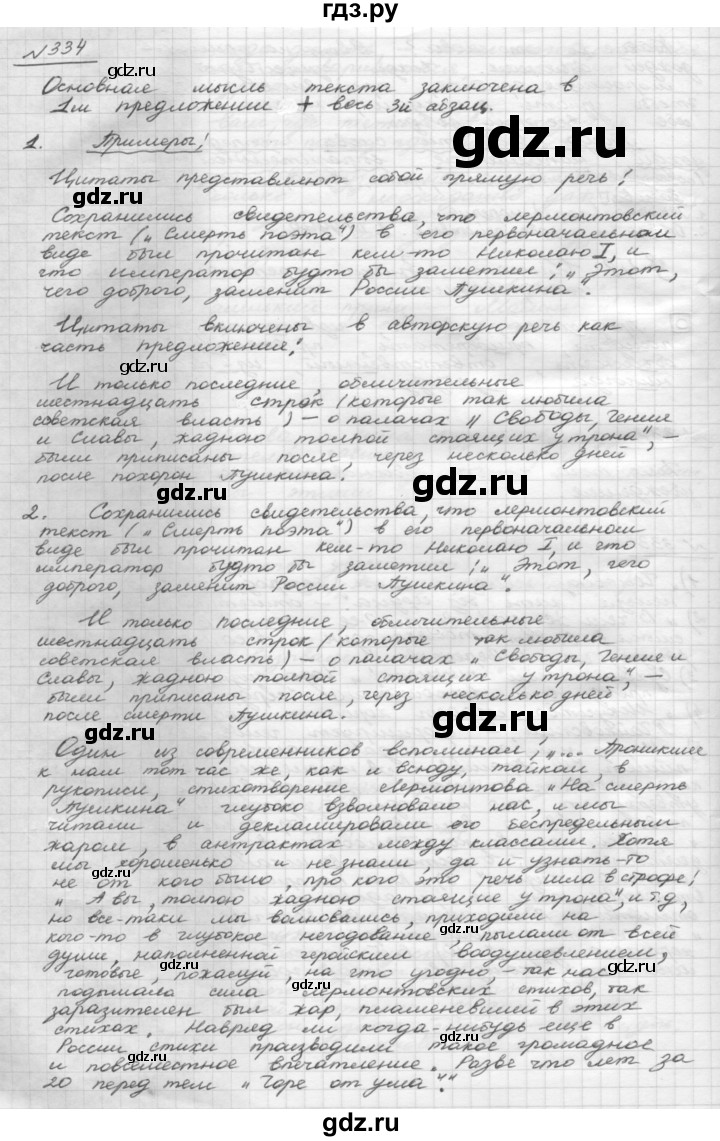 гдз.ру
№334
Основная мысль текста заключена в
1м предложении + весь 3й абзац.
gdz.ru
1. Примеры:
Цитаты представляют собой прямую речь:
gdz.ru
Сохранились свидетельства, что лермонтовский
текст („Смерть поэта“) в его первоначальном
виде был прочитан кем-то Николаю I, и
что император будто бы заметил: „Этот,
чего доброго, заменит России Пушкина“.
gdz.ru
Цитаты включены в авторскую речь как
часть предложения:
gdz.ru
И только последние, обличительные
шестнадцать строк (которые так любила
советская власть) – о палачах „Свободы, Гения
и Славы, жадною толпой стоящих у трона“, –
были приписаны после, через несколько дней
после похорон Пушкина.
gdz.ru
2. Сохранились свидетельства, что лермонтовский
текст („Смерть поэта“) в его первоначальном
виде был прочитан кем-то Николаю I, и что
император будто бы заметил: „Этот, чего
доброго, заменит России Пушкина“.
gdz.ru
И только последние, обличительные
шестнадцать строк (которые так любила
советская власть) – о палачах „Свободы, Гения и
Славы, жадною толпой стоящих у трона“, –
были приписаны после, через несколько дней
после смерти Пушкина.
gdz.ru
Один из современников вспоминал: „... Проникшее
к нам тотчас же, как и всюду, тайком, в
рукописи, стихотворение Лермонтова „На смерть
Пушкина“ глубоко взволновало нас, и мы
читали и декламировали его беспредельным
жаром, в антрактах между классами. Хотя
мы хорошенько и не знали, да и узнать-то
не от кого было, про кого это речь шла в строфе:
„А вы, толпою жадною стоящие у трона“, и т.д,
но все-таки мы волновались, приходили на
кого-то в глубокое негодование, пылали от всей
души, наполненной геройским воодушевлением,
готовые, пожалуй, на что угодно, – так нас
подымала сила лермонтовских стихов, так
заразителен был жар, пламеневший в этих
стихах. Навряд ли когда-нибудь еще в
России стихи производили такое громадное
и повсеместное впечатление. Разве что лет за
20 перед тем „Горе от ума“.“
gdz.ru
gdz.ru
gdz.ru